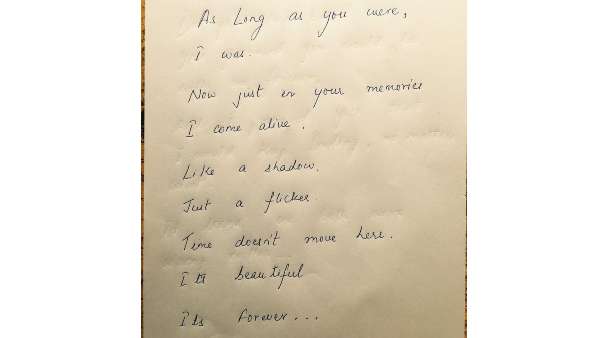 As Long as you were,
I was.
Now just in your memories
I come alive.
Like a shadow.
Just a flicker.
Time doesn't move here.
Its beautiful
Its Forever...